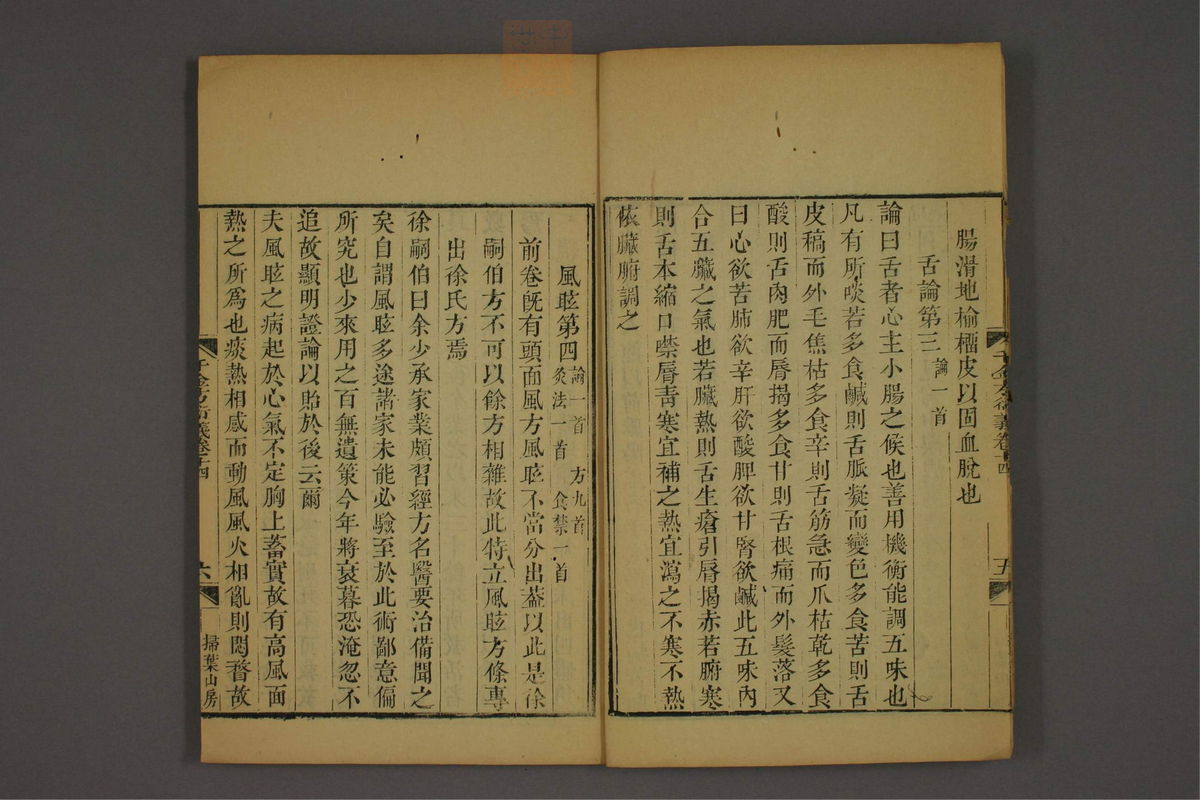 腸滑地榆櫺皮以固血脫也
舌論第三論一首
論曰舌者心主小腸之候也善用機衡能調五味也
凡有所啖若多食鹹則舌脈凝而變色多食苦則舌
皮稿而外毛焦枯多食辛則舌筋急而爪枯乾多食
酸則舌肉肥而唇揭多食甘則舌根痛而外髮落又
曰心欲苦肺欲辛肝欲酸脾欲甘腎欲鹹此五味內
合五臟之氣也若臟熱則舌生瘡引唇揭赤若腑寒
則舌本縮口噤唇青寒宜補之熱宜瀉之不寒不熱
依臟腑調之
千金方衍義卷十四
五
風眩第四論一首 方九首 灸法一首 食禁一首
前卷既有頭面風方風眩不當分出蓋以此是徐
嗣伯方不可以餘方相雜故此特立風眩方條專
出徐氏方焉
徐嗣伯曰余少承家業頗習經方名醫要治備聞之
矣自謂風眩多途諸家未能必驗至於此術鄙意偏
所究也少來用之百無遺策今年將衰暮恐淹忽不
追故顯明證論以貽於後云爾
夫風眩之病起於心氣不定胸上蓄實故有高風面
熱之所為也痰熱相感而動風風火相亂則悶瞀故
千金方衍義卷十四
六
掃葉山房